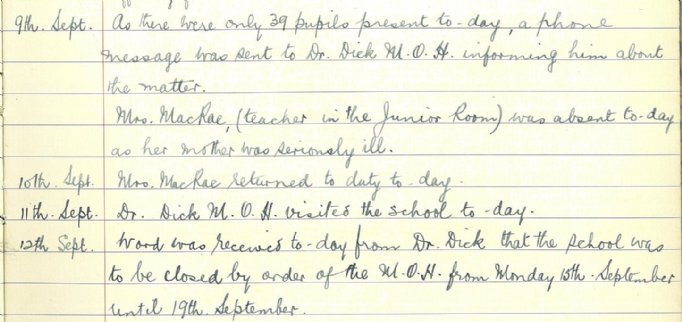 9th. Sept. As there were only 39 pupils present to-day, a phone
message was sent to Dr. Dick M.O.H. informing him about
the matter.
Mrs. MacRae, (teacher in the Junior Room) was absent to-day
as her mother was seriously ill.
10th. Sept. Mrs. MacRae returned to duty to-day.
11th. Sept. Dr. Dick M.O.H. visited the school to-day.
12th Sept. Word was received to-day from Dr. Dick that the school was
to be closed by order of the M.O.H. from Monday 15th. September
until 19th. September.